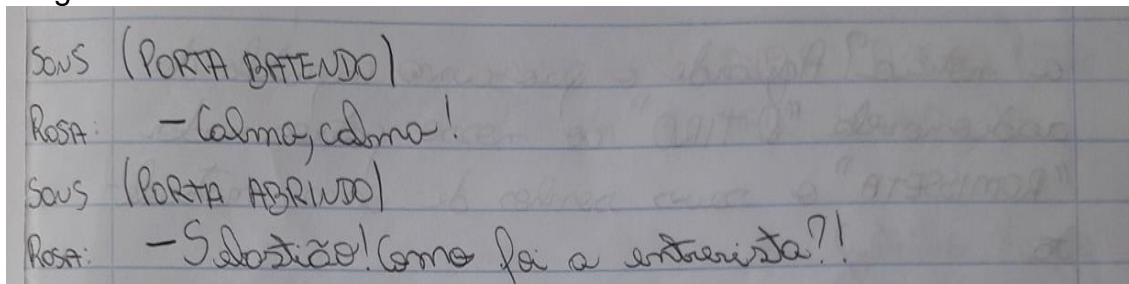 SONS (PORTA BATENDO)
ROSA: - Calma, calma!
SONS (PORTA ABRINDO)
ROSA: - Sebastião! Como foi a entrevista?!